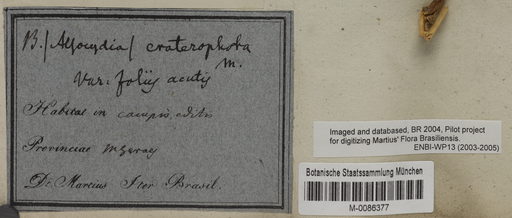 B. (Alsocydia) craterophora
m.
Var: foliis acutis
Habitat in campis editis
Provinciae
Dr. Martius Iter Brasil.
Imaged and databased, BR 2004, Pilot project
for digitizing Martius' Flora Brasiliensis.
ENBI-WP13 (2003-2005)
Botanische Staatssammlung München
M-0086377